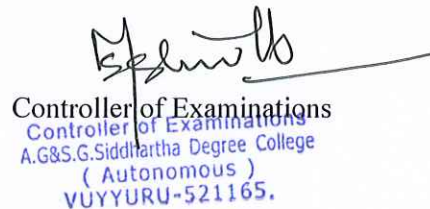 Controller of Examinations
Controller of Examinations
A.G&S.G.Siddhartha Degree College
( Autonomous )
VUYYURU-521165.